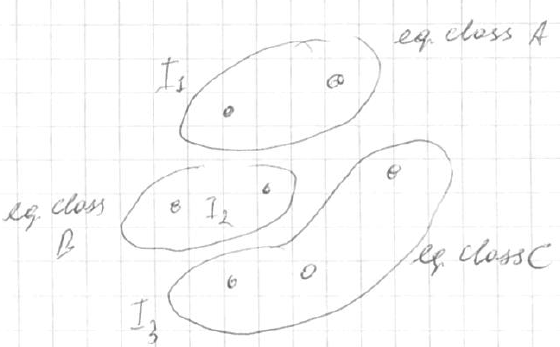 eq. class A
I1
eq. class
B
I2
eq. class C
I3